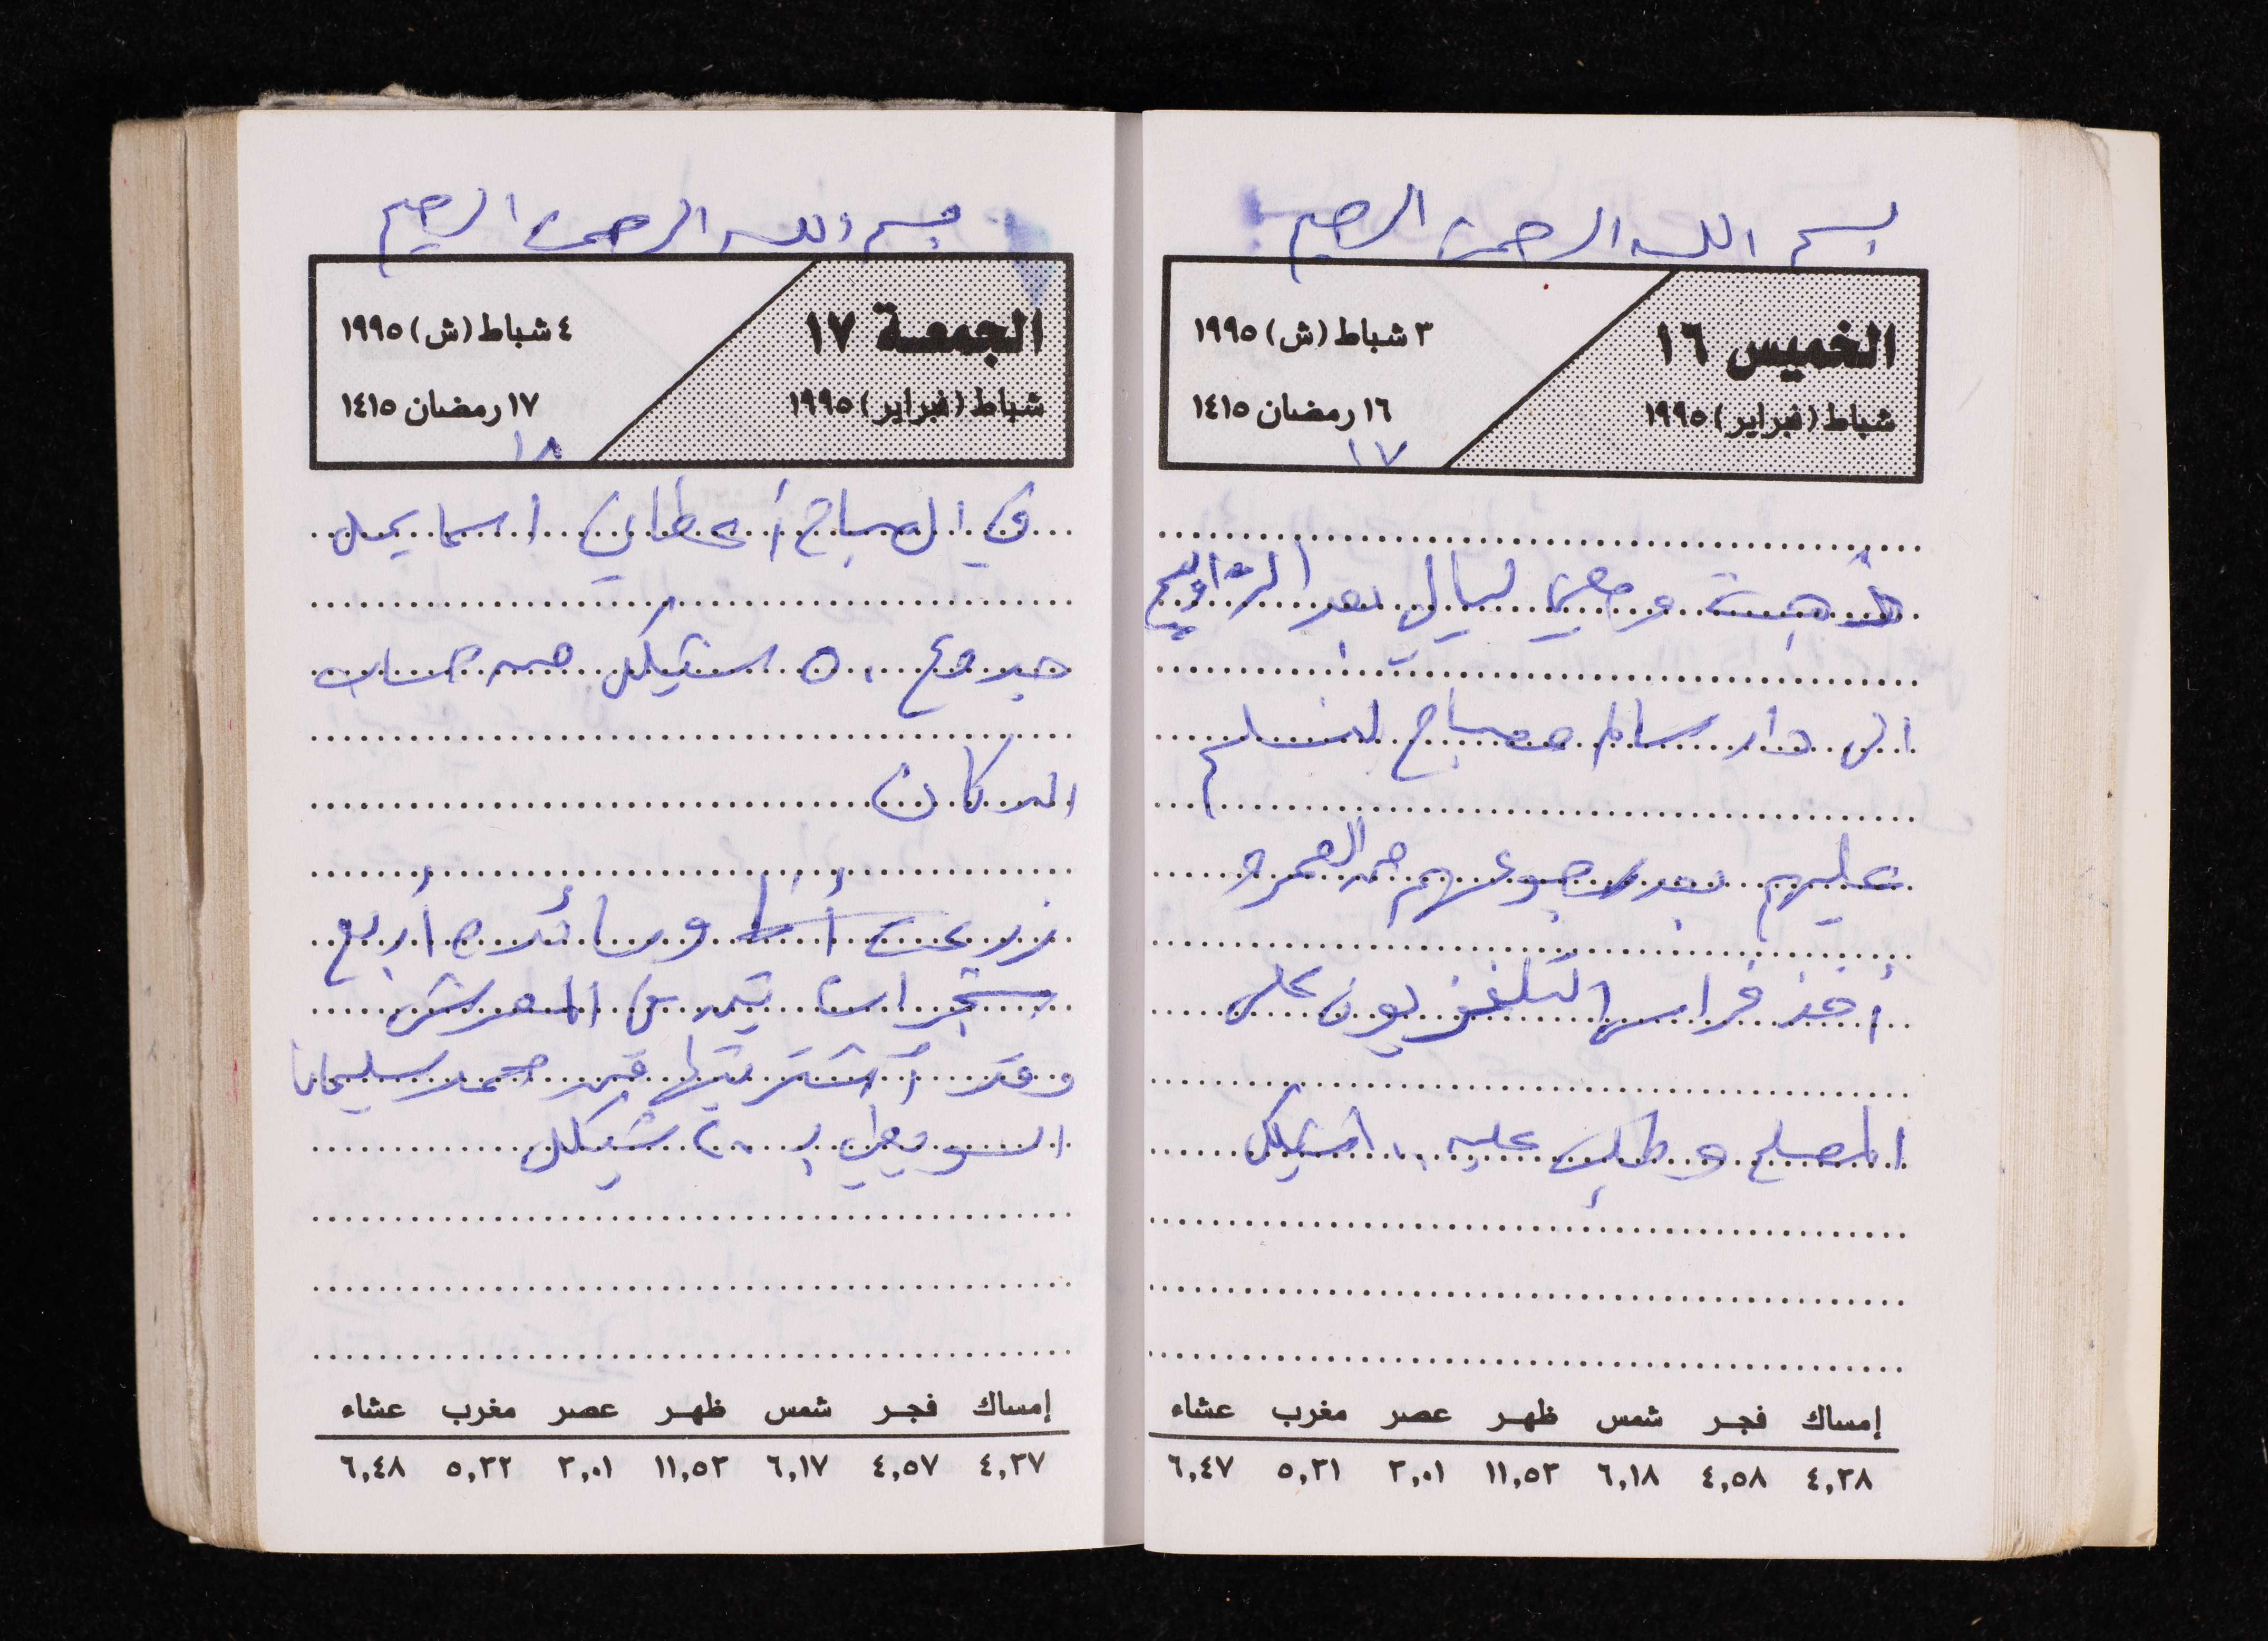 بسم الله الرحمن الرحيم
الخميس ١٦
شباط (فبراير) ١٩٩٥
٣ شباط (ش) ١٩٩٥
١٦ رمضان ١٤١٥
١٧
ذهبت ومعي ليال بعد التراويح
الى دار سالم مصباح لنسلم
عليهم بعد رجوعهم من العمرة
أخذ فراس التلفزيون على
المصلح وطلب عليه ١٠٠ شيكل
إمساك فجر شمس ظهر عصر مغرب عشاء
٤,٢٨ ٤,٥٨ ٦,١٨ ١١,٥٢ ٣,٠١ ٥,٢١ ٦,٤٧
بسم الله الرحمن الرحيم
الجمعة ١٧
شباط (فبراير) ١٩٩٥
٤ شباط (ش) ١٩٩٥
١٧ رمضان ١٤١٥
١٨
في الصباح أعطاني اسما يحل
مبلغ ٥٠٠ شيكل من حساب
الدكان
زرعت أنا ورائده أربع
شجرات تين المعرش
وقد اشتريتها من محمد سليمان
السويطي ب ٢٠ شيكل
إمساك فجر شمس ظهر عصر مغرب عشاء
٤,٢٧ ٤,٥٧ ٦,١٧ ١١,٥٢ ٣,٠١ ٥,٢٢ ٦,٤٨